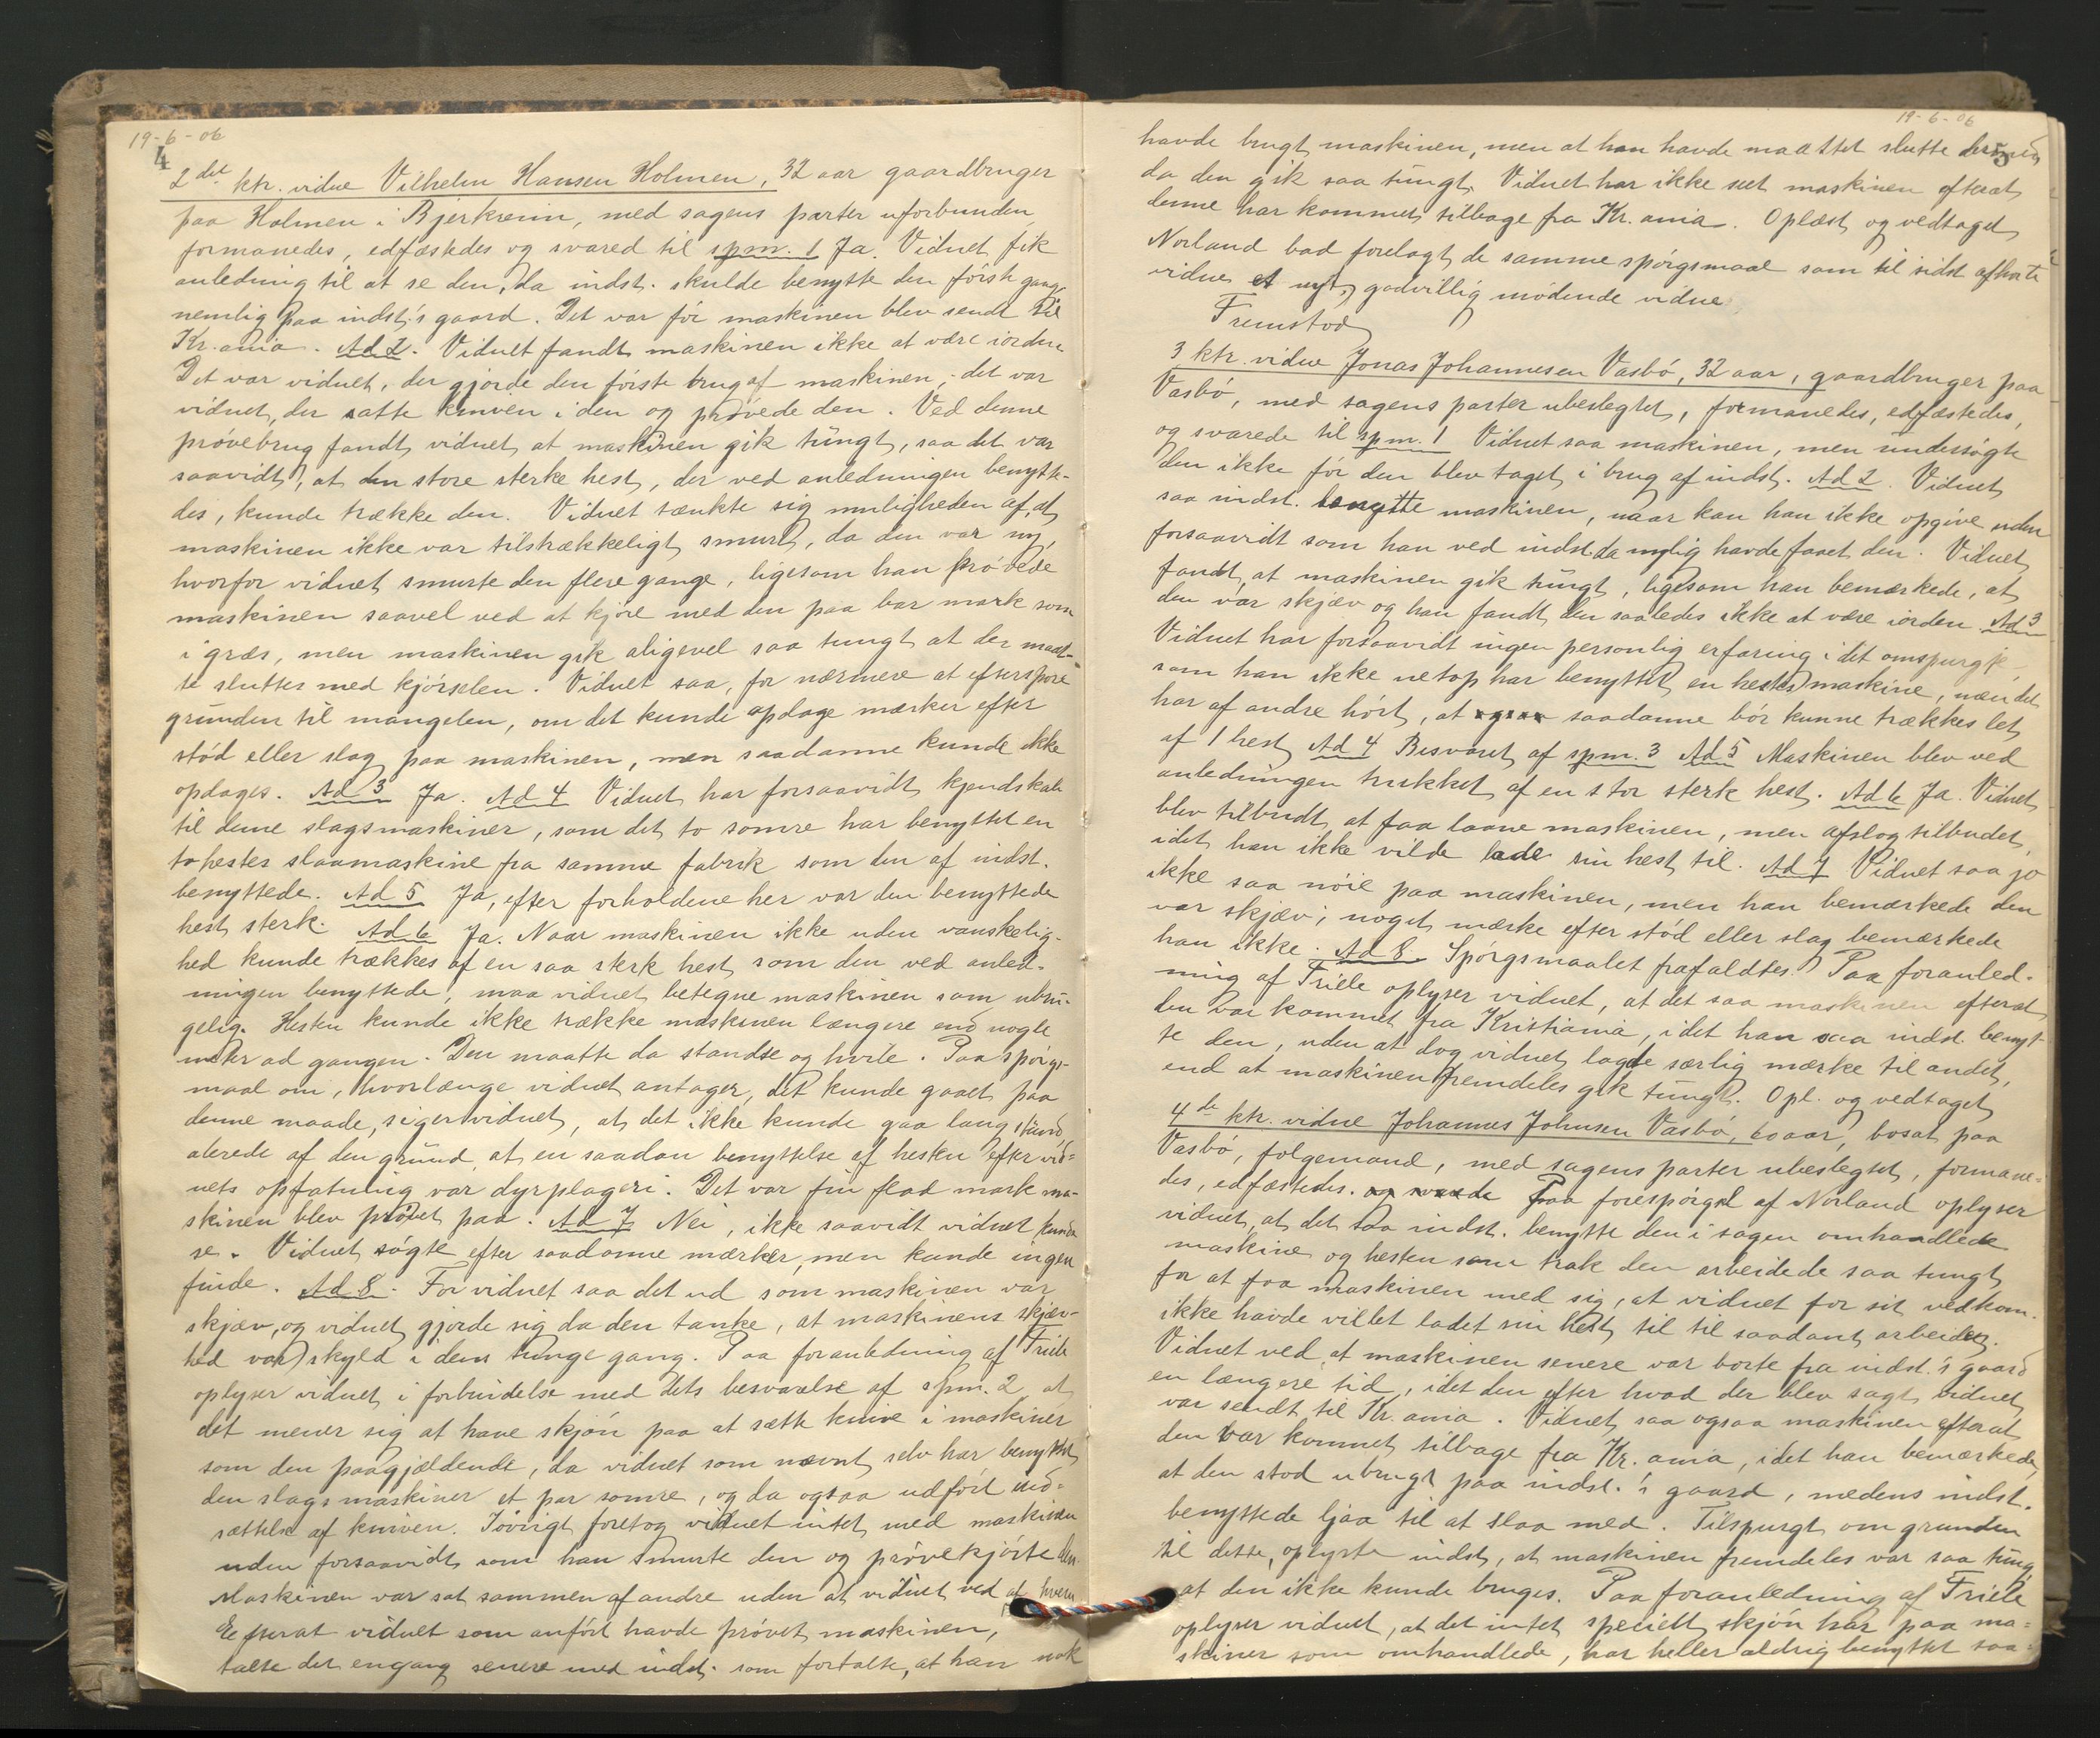 19-6-06
4
2det ktr. vidne Vilhelm Hansen Holmen, 32 aar gaardbruger
paa Holmen i Bjerkreim, med sagens parter uforbunden
formanedes, edfæstedes og svared til spm. 1 Ja. Vidnet fik
anledning til at se den, da indst. skulde benytte den først gang,
nemlig paa indst.'s gaard. Det var før maskinen blev sendt til
Kr.ania. Ad 2. Vidnet fandt maskinen ikke at være iorden
Det var vidnet, der gjorde den første brug af maskinen, det var
vidnet, der satte kniven i den og prøvede den. Ved denne
prøvebrug fandt vidnet at maskinen gik tungt, saa det var
saavidt, at den store sterke hest, der ved anledningen benytte-
des, kunde trække den. Vidnet tænkte sig muligheden af, at
maskinen ikke var tilstrækkeligt smurt, da den var ny,
hvorfor vidnet smurte den flere gange, ligesom han prøvede
maskinen saavel ved at kjøre med den paa bar mark som
i græs, men maskinen gik aligevel saa tungt at der maat-
te sluttes med kjørselen. Vidnet saa, for nærmere at efterspore
grunden til mangelen, om det kunde opdage mærker efter
stød eller slag paa maskinen, men saadanne kunde ikke
opdages. Ad 3 Ja. Ad 4 Vidnet har forsaavidt kjendskab
til denne slags maskiner, som det to somre har benyttet en
tohestes slaamaskine fra samme fabrik som den af indst.
benyttede. Ad 5 Ja, efter forholdene her var den benyttede
hest sterk. Ad 6 Ja. Naar maskinen ikke uden vanskelig-
hed kunde trækkes af en saa sterk hest som den ved anled-
ningen benyttede, maa vidnet betegne maskinen som ubru-
gelig. Hesten kunde ikke trække maskinen længere end nogle
meter ad gangen. Den maatte da standse og hvile. Paa spørgs-
maal om, hvorlænge vidnet antager, det kunde gaaet paa
denne maade, siger vidnet, at det ikke kunde gaa lang stund
alerede af den grund, at en saadan benyttelse af hesten efter vid-
nets opfatning var dyrplageri. Det var fin flad mark ma-
skinen blev prøvet paa. Ad 7 Nei, ikke saavidt vidnet kunde
se. Vidnet søgte efter saadanne mærker, men kunde ingen
finde. Ad 8. For vidnet saa det ud som maskinen var
skjæv, og vidnet gjorde sig da den tanke, at maskinens skjæv-
hed var skyld i dens tunge gang. Paa foranledning af Friele
oplyser vidnet i forbindelse med dets besvarelse af spm. 2 at
det mener sig at have skjøn paa at sætte knive i maskiner
som den paagjældende, da vidnet som nævnt selv har benyttet
den slags maskiner et par somre, og da ogsaa udført ind-
sættelse af kniven. Iøvrigt foretog vidnet intet med maskinen
uden forsaavidt som han smurte den og prøvekjørte den.
Maskinen var sat sammen af andre uden at vidnet ved af hvem
Efterat vidnet som anført havde prøvet maskinen,
talte det engang senere med indst. som fortalte, at han nok
19-6-06
5
havde brugt maskinen, men at han havde maattet slutte dermed
da den gik saa tungt. Vidnet har ikke seet maskinen efterat
denne har kommet tilbage fra Kr.ania. Oplæst og vedtaget
Norland bad forelagt de samme spørgsmaal som til sidst afhørte
vidne et nyt, godvillig mødende vidne.
Fremstod
3 ktr. vidne Jonas Johannesen Vasbø, 32 aar, gaardbruger paa
Vasbø, med sagens parter ubeslegtet, formanedes, edfæstedes,
og svarede til spm. 1 Vidnet saa maskinen, men undersøgte
den ikke før den blev taget i brug af indst. Ad 2. Vidnet
saa indst. benytte maskinen, naar kan han ikke opgive uden
forsaavidt som han ved indst. da nylig havde faaet den. Vidnet
fandt, at maskinen gik tungt, ligesom han bemærkede, at
den var skjæv og han fandt den saaledes ikke at være iorden Ad 3
Vidnet har forsaavidt ingen personlig erfaring i det omspurgte
som han ikke netop har benyttet en hestes maskine, men det
har af andre hørt, at saadanne bør kunne trækkes let
af 1 hest Ad 4 Besvaret af spm. 3 Ad 5 Maskinen blev ved
anledningen trukket af en stor sterk hest. Ad 6 Ja. Vidnet
blev tilbudt at faa laane maskinen, men afslog tilbudet,
idet han ikke vilde lade sin hest til. Ad 7 Vidnet saa jo
ikke saa nøie paa maskinen, men han bemærkede den
var skjæv; noget mærke efter stød eller slag bemærkede
han ikke. Ad 8. Spørgsmaalet frafaldtes. Paa foranled-
ning af Friele oplyser vidnet, at det saa maskinen efterat
den var kommet fra Kristiania, idet han saa indst. benyt-
te den, uden at dog vidnet lagde særlig mærke til andet,
end at maskinen fremdeles gik tungt. Opl. og vedtaget
4de ktr. vidne Johannes Johnsen Vasbø, 60 aar, bosat paa
Vasbø, følgemand, med sagens parter ubeslegtet, formane-
des, edfæstedes. og svarede Paa forespørgsel af Norland oplyser
vidnet, at det saa indst. benytte den i sagen omhandlede
maskine og hesten som trak den arbeidede saa tungt
for at faa maskinen med sig, at vidnet for sit vedkom.
ikke havde villet ladet sin hest til til saadant arbeide.
Vidnet ved, at maskinen senere var borte fra indst.'s gaard
en længere tid, idet den efter hvad der blev sagt vidnet
var sendt til Kr.ania. Vidnet saa ogsaa maskinen efterat
den var kommet tilbage fra Kr.ania, idet han bemærkede,
at den stod ubrugt paa indst.'s gaard, medens indst.
benyttede ljaa til at slaa med. Tilspurgt om grunden
til dette, oplyste indst, at maskinen fremdeles var saa tung,
at den ikke kunde bruges. Paa foranledning af Friele
oplyser vidnet, at det intet specielt skjøn har paa ma-
skiner som omhandlede, har heller aldrig benyttet saa-